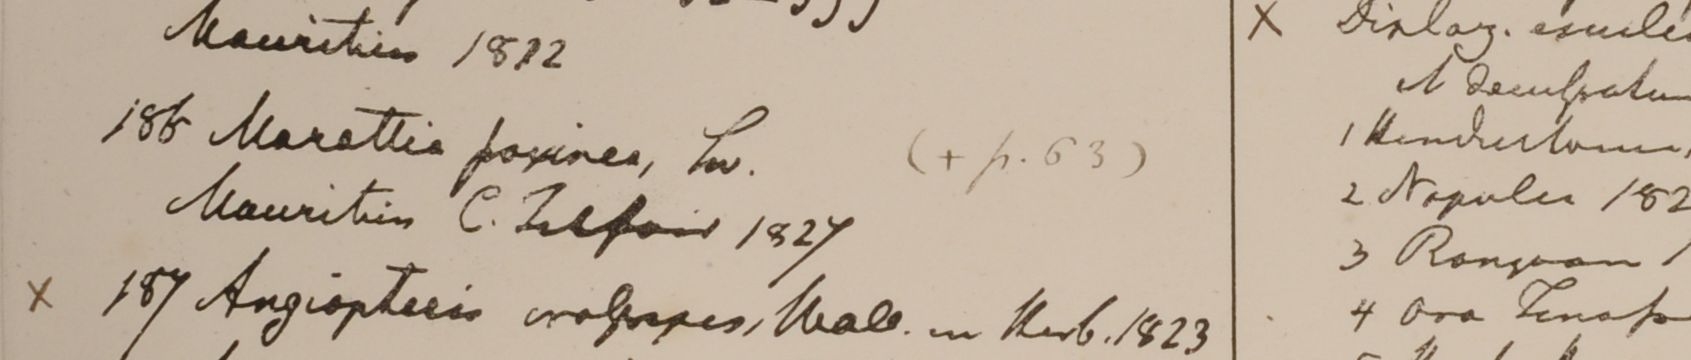 Mauritius 1822
186 Marattia fraxinea, Sw. (+ p. 63)
Mauritius C. Telfair 1827
x 187 Angiopteris crassipes, Wall. in Herb. 1823
x Diplaz. escule
1 Hindustania,
2 Napalia 182
3 Rangoon 1
4 Ora Tenas